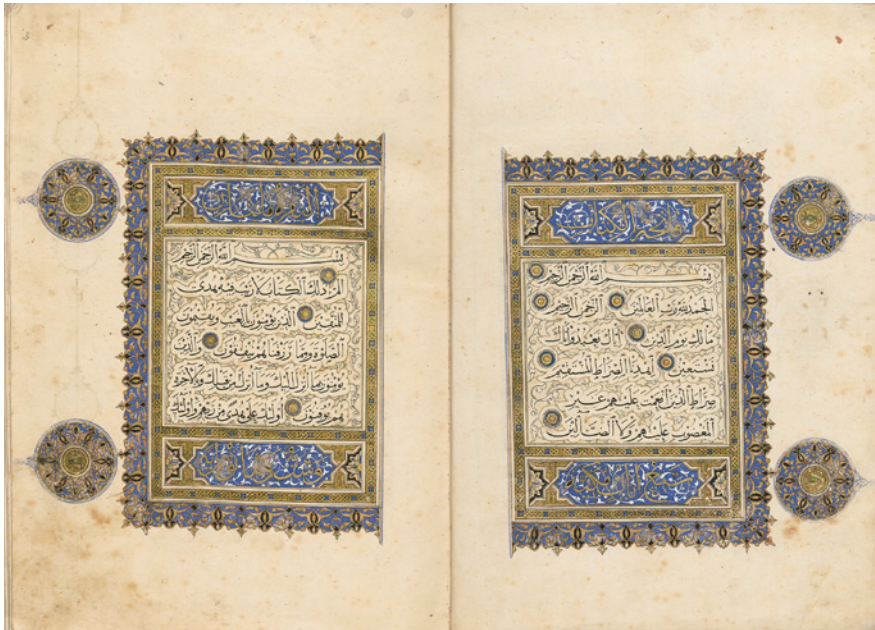 فاتحة الكتاب
بسم الله الرحمن الرحيم
الحمد لله رب العالمين الرحمن الرحيم
مالك يوم الدين اياك نعبد واياك
نستعين اهدنا الصراط المستقيم
صراط الذين انعمت عليهم غير
المغضوب عليهم ولا الضالين
سبع ايات
بسم الله الرحمن الرحيم
الم ذلك الكتاب لا ريب فيه هدى
للمتقين الذين يؤمنون بالغيب ويقيمون
الصلوة ومما رزقناهم ينفقون والذين
يؤمنون بما انزل اليك وما انزل من قبلك وبالاخرة
هم يوقنون اولئك على هدى من ربهم واولئك